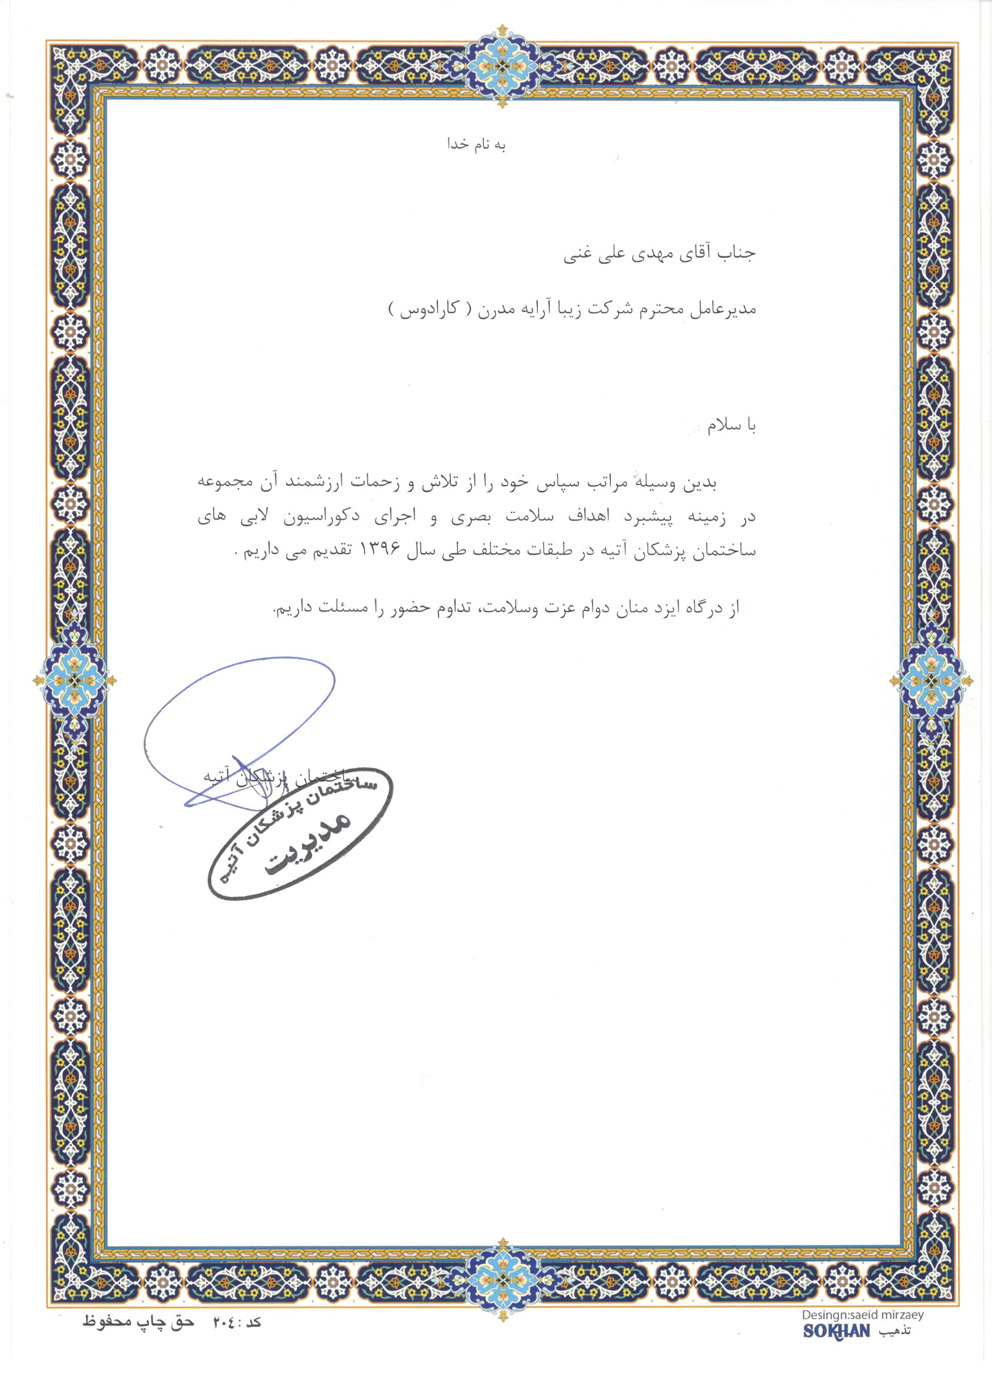 به نام خدا
جناب آقای مهدی علی غنی
مدیرعامل محترم شرکت زیبا آرایه مدرن ( کارادوس )
با سلام
بدین وسیله مراتب سپاس خود را از تلاش و زحمات ارزشمند آن مجموعه
در زمینه پیشبرد اهداف سلامت بصری و اجرای دکوراسیون لابی های
ساختمان پزشکان آتیه در طبقات مختلف طی سال ۱۳۹۶ تقدیم می داریم .
از درگاه ایزد منان دوام عزت وسلامت، تداوم حضور را مسئلت داریم.
ساختمان پزشکان آتیه
ساختمان پزشکان آتیه
مدیریت
کد : ۲۰٤ حق چاپ محفوظ
Desingn:saeid mirzaey
تذهیب SOKHAN